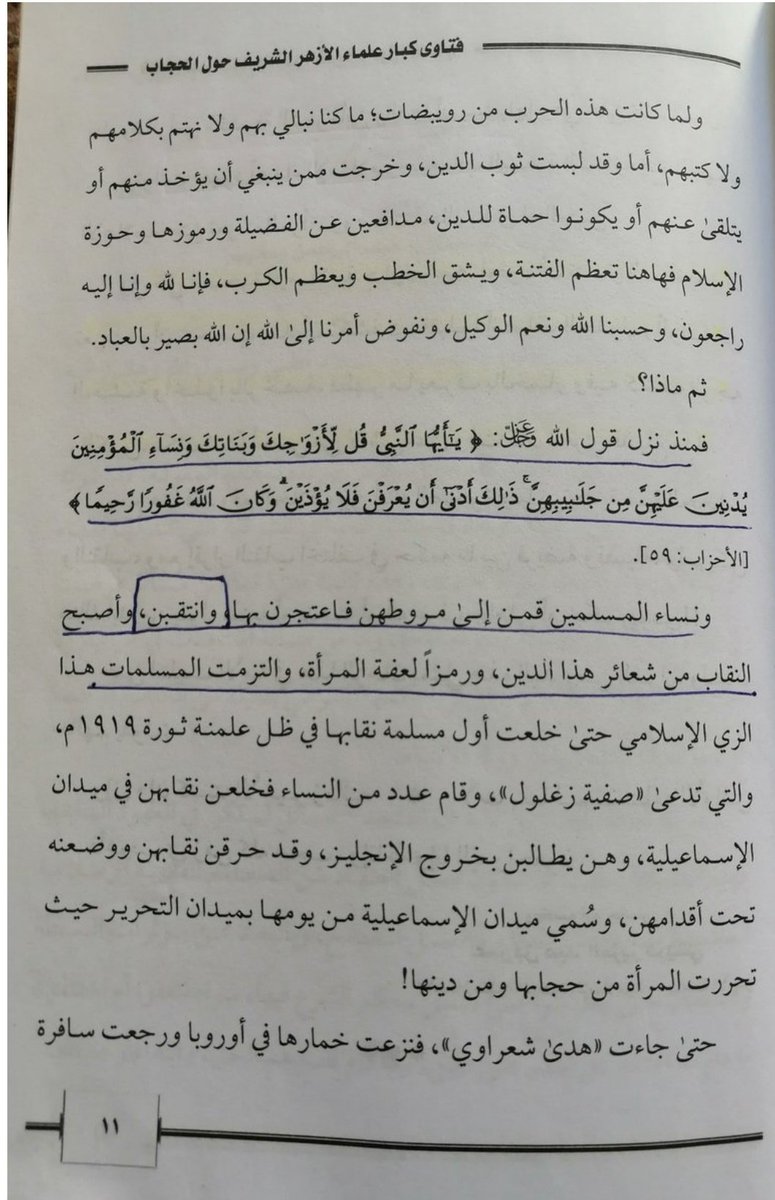 فتاوى كبار علماء الأزهر الشريف حول الحجاب
ولما كانت هذه الحرب من رويبضات؛ ما كنا نبالي بهم ولا نهتم بكلامهم
ولا كتبهم، أما وقد لبست ثوب الدين، وخرجت ممن ينبغي أن يؤخذ منهم أو
يتلقىٰ عنهم أو يكونوا حماة للدين، مدافعين عن الفضيلة ورموزها وحوزة
الإسلام فهاهنا تعظم الفتنة، ويشق الخطب ويعظم الكرب، فإنا لله وإنا إليه
راجعون، وحسبنا الله ونعم الوكيل، ونفوض أمرنا إلىٰ الله إن الله بصير بالعباد.
ثم ماذا؟
فمنذ نزل قول الله عَزَّوَجَلَّ: ﴿ يَٰٓأَيُّهَا ٱلنَّبِىُّ قُل لِّأَزْوَٰجِكَ وَبَنَاتِكَ وَنِسَآءِ ٱلْمُؤْمِنِينَ
يُدْنِينَ عَلَيْهِنَّ مِن جَلَٰبِيبِهِنَّ ۚ ذَٰلِكَ أَدْنَىٰٓ أَن يُعْرَفْنَ فَلَا يُؤْذَيْنَ ۗ وَكَانَ ٱللَّهُ غَفُورًا رَّحِيمًا ﴾
[الأحزاب: ٥٩].
ونساء المسلمين قمن إلىٰ مروطهن فاعتجرن بها، وانتقبن، وأصبح
النقاب من شعائر هذا الدين، ورمزاً لعفة المرأة، والتزمت المسلمات هذا
الزي الإسلامي حتىٰ خلعت أول مسلمة نقابها في ظل علمنة ثورة ١٩١٩م،
والتي تدعىٰ «صفية زغلول»، وقام عدد من النساء فخلعن نقابهن في ميدان
الإسماعيلية، وهن يطالبن بخروج الإنجليز، وقد حرقن نقابهن ووضعنه
تحت أقدامهن، وسُمي ميدان الإسماعيلية من يومها بميدان التحرير حيث
تحررت المرأة من حجابها ومن دينها!
حتىٰ جاءت «هدىٰ شعراوي»، فنزعت خمارها في أوروبا ورجعت سافرة
١١